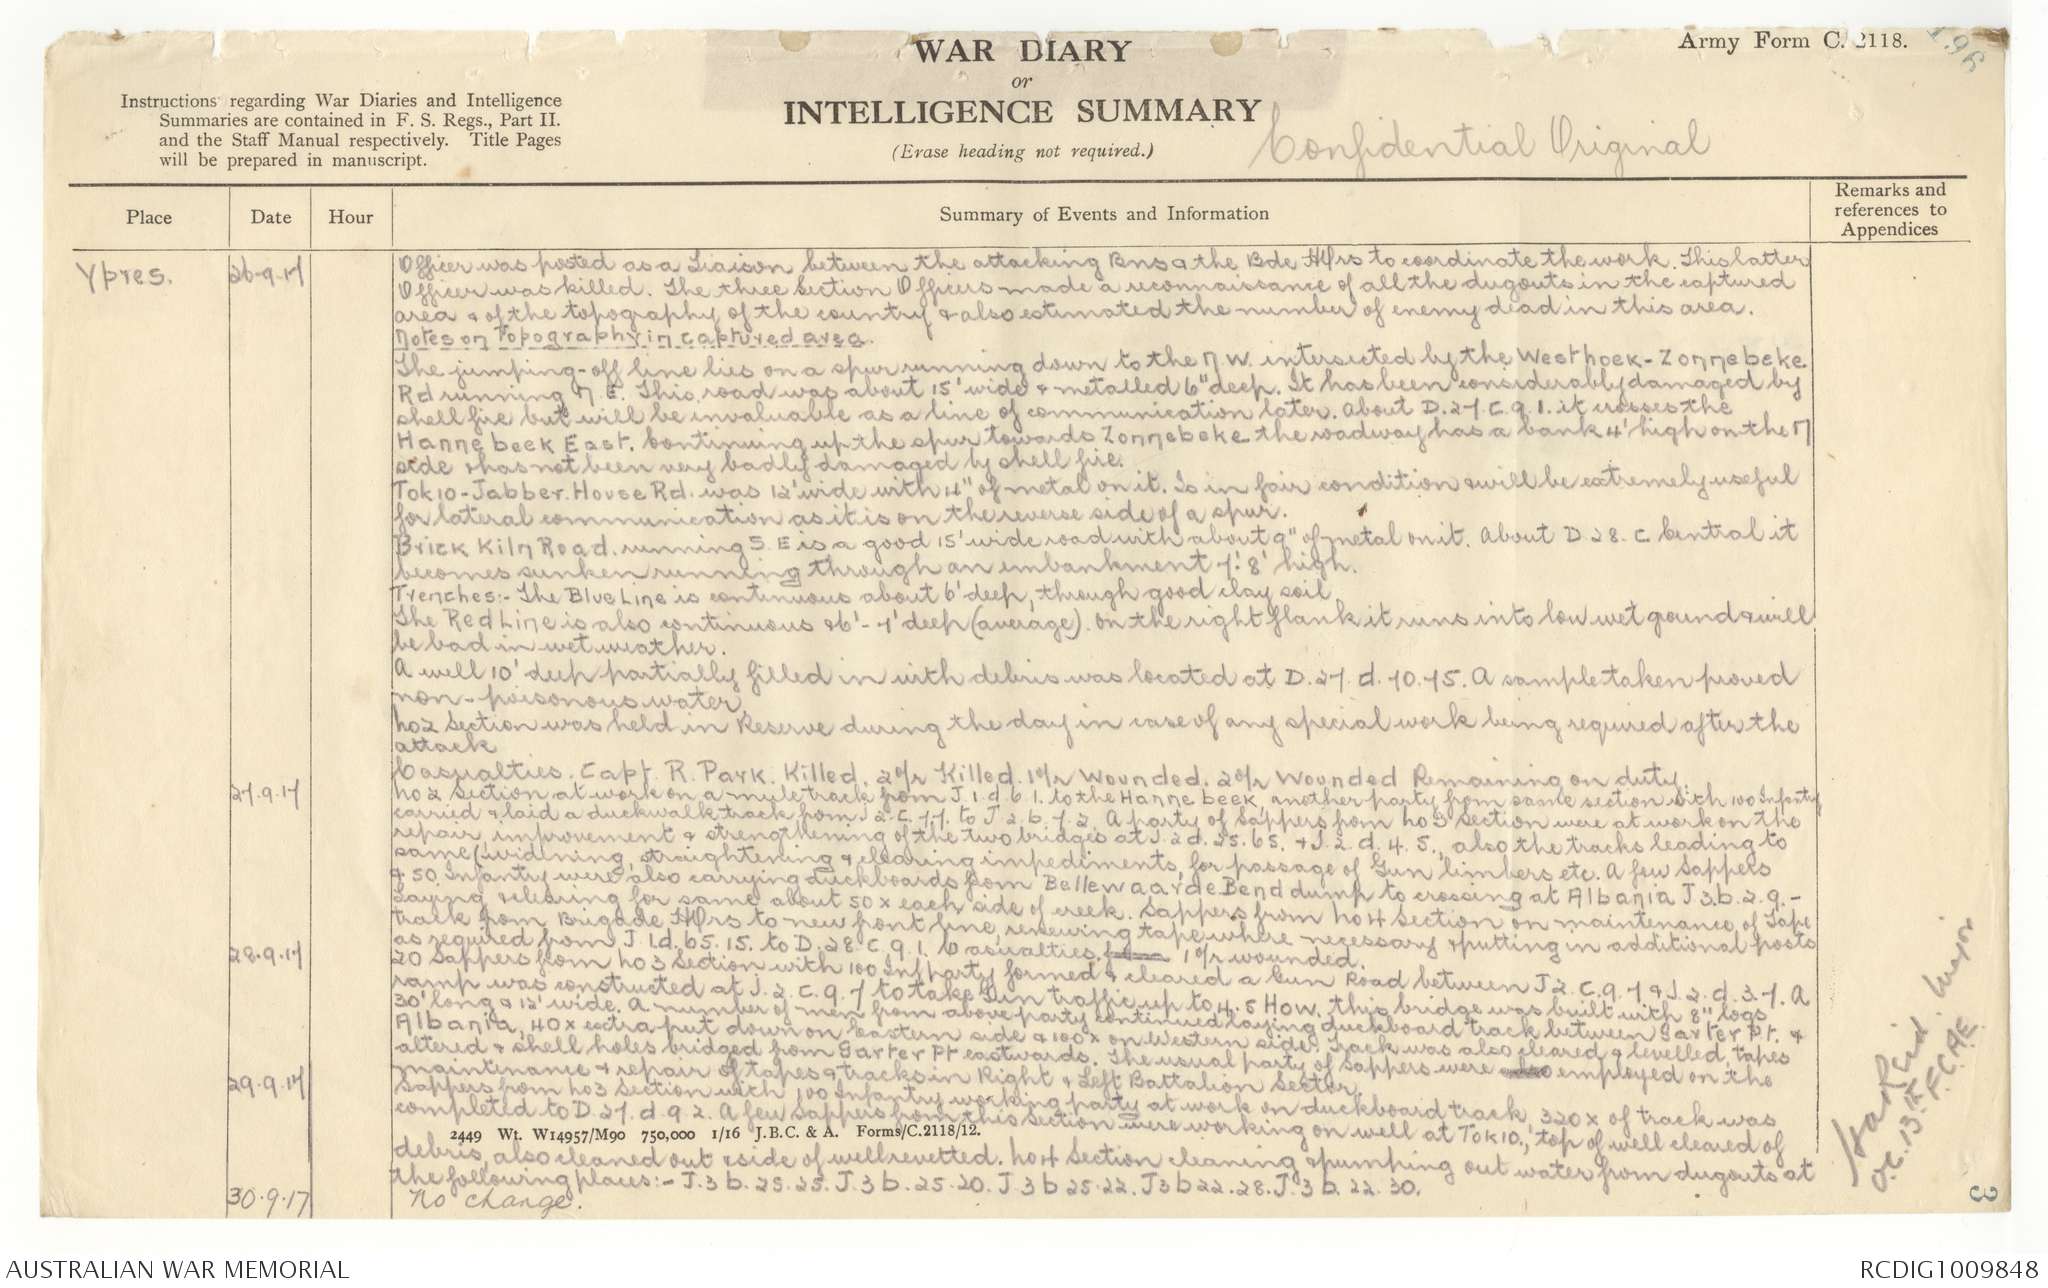 WAR DIARY
or
INTELLIGENCE SUMMARY
(Erase heading not required.)
Army Form C. 2118.
Instructions regarding War Diaries and Intelligence
Summaries are contained in F. S. Regs., Part II.
and the Staff Manual respectively. Title Pages
will be prepared in manuscript.
Confidential Original
Place Date Hour Summary of Events and Information Remarks and
references to
Appendices
Ypres. 26.9.17 Officer was posted as a Liaison between the attacking Bns & the Bde HQrs to coordinate the work. This latter
Officer was killed. The three Section Officers made a reconnaissance of all the dugouts in the captured
area & of the topography of the country & also estimated the number of enemy dead in this area.
Notes on Topography in captured area.
The jumping-off line lies on a spur running down to the N W. intersected by the Westhoek-Zonnebeke
Rd running N.E. This road was about 15' wide & metalled 6" deep. It has been considerably damaged by
shell fire but will be invaluable as a line of communication later. About D.27.C.9.1. it crosses the
Hannebeek East. Continuing up the spur towards Zonnebeke the roadway has a bank 4' high on the N
side & has not been very badly damaged by shell fire.
Tokio-Jabber House Rd. was 12' wide with 4" of metal on it. Is in fair condition & will be extremely useful
for lateral communication as it is on the reverse side of a spur.
Brick Kiln Road. running S.E is a good 15' wide road with about 9" of metal on it. About D.28.C Central it
becomes sunken running through an embankment 7'.8' high.
Trenches:- The Blue Line is continuous about 6' deep, through good clay soil
The Red Line is also continuous & 6'-7' deep (average). On the right flank it runs into low wet ground & will
be bad in wet weather.
A well 10' deep partially filled in with debris was located at D.27.d.70.75. A sample taken proved
non-poisonous water.
No 2 Section was held in Reserve during the day in case of any special work being required after the
attack
Casualties. Capt. R. Park. Killed. 2 O/r Killed. 1 O/r Wounded. 2 O/r Wounded Remaining on duty.
27.9.17 No 2 Section at work on a mule track from J.1.d.6.1. to the Hannebeek, another party from same section with 100 Infantry
carried & laid a duckwalk track from J.2.C.7.7. to J.2.b.7.2. A party of Sappers from No 3 Section were at work on the
repair, improvement & strengthening of the two bridges at J.2.d.25.65. & J.2.d.4.5., also the tracks leading to
same, widening, straightening & clearing impediments, for passage of Gun limbers etc. A few Sappers
& 50 Infantry were also carrying duckboards from Bellewaarde Bend dump to crossing at Albania J3.b.2.9.-
laying & clearing for same about 50x each side of creek. Sappers from No 4 Section on maintenance of Tape
track from Brigade HQrs to new front line, renewing tape where necessary & putting in additional posts
as required from J.1.d.65.15. to D.28.C.9.1. Casualties. 1 O/r wounded.
28.9.17 20 Sappers from No 3 Section with 100 Inf party formed & cleared a Gun Road between J2.C.9.7. & J.2.d.3.7. A
ramp was constructed at J.2.C.9.7 to take Gun traffic up to 4.5 How. this bridge was built with 8" logs
30' long & 12' wide. A number of men from above party continued laying duckboard track between Garter Pt. &
Albania, 40x extra put down on Eastern side & 100x on Western side. Track was also cleared & levelled, tapes
altered & shell holes bridged from Garter Pt eastwards. The usual party of Sappers were employed on the
maintenance & repair of tapes & tracks in Right & Left Battalion Sector.
29.9.17 Sappers from No 3 Section with 100 Infantry working party at work on duckboard track, 320x of track was
completed to D.27.d.9.2. A few Sappers from this section were working on well at Tokio., top of well cleared of
2449 Wt. W14957/M90 750,000 1/16 J.B.C. & A. Forms/C.2118/12.
debris, also cleaned out & side of well revetted. No 4 Section cleaning & pumping out water from dugouts at
the following places:- J.3 b.25.25. J.3 b.25.20. J.3 b 25.22. J3 b 22.28. J.3 b.22.30.
30.9.17 No change.
Major.
O.C. 13th F.C.A.E.
3
AUSTRALIAN WAR MEMORIAL
RCDIG1009848